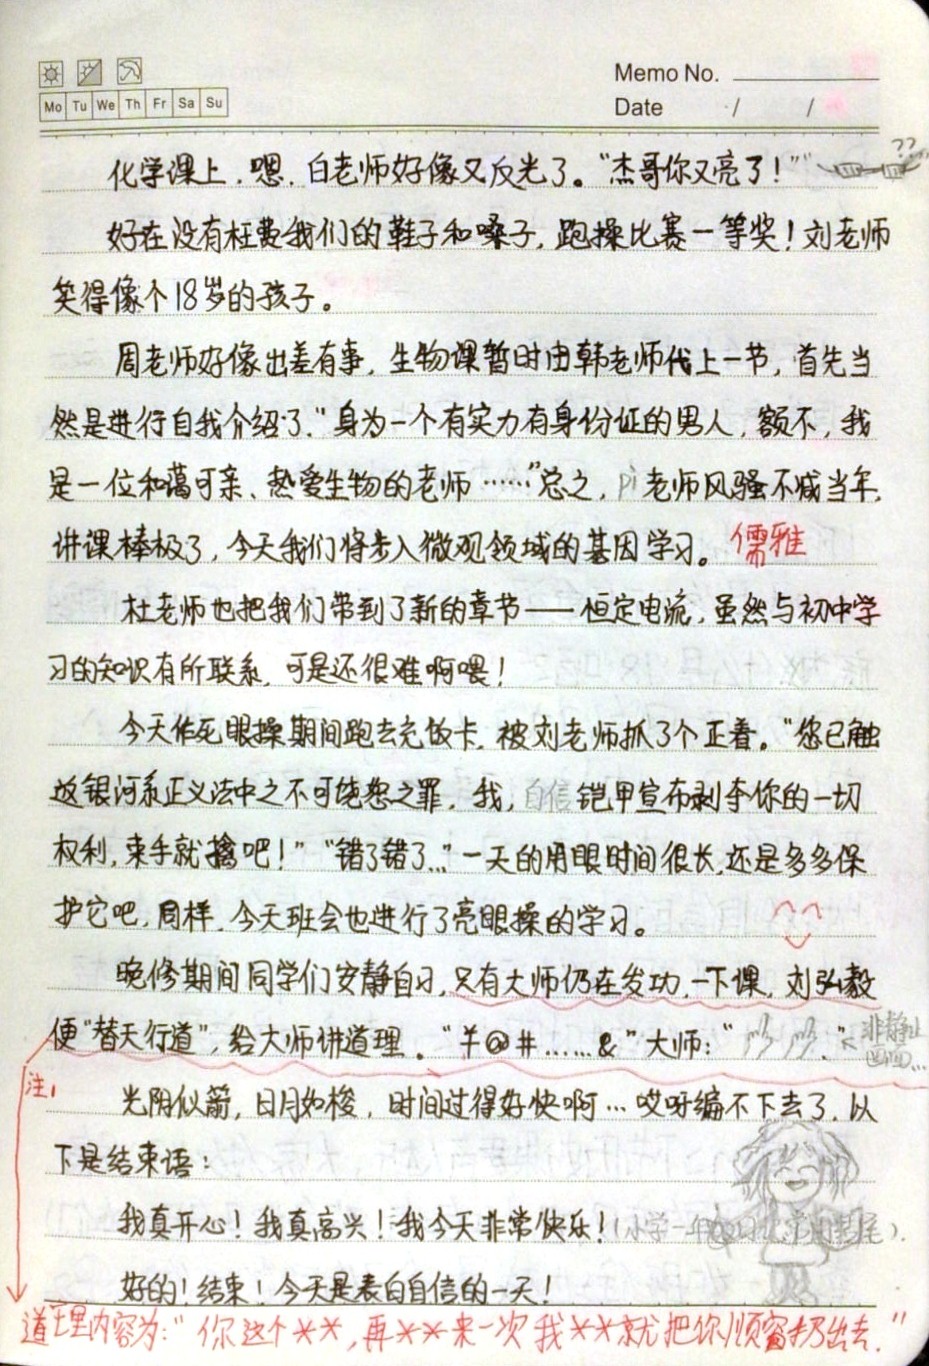 Memo No.
Mo Tu We Th Fr Sa Su
Date / /
化学课上，嗯，白老师好像又反光了。“杰哥你又亮了！” ??
好在没有枉费我们的鞋子和嗓子，跑操比赛一等奖！刘老师
笑得像个18岁的孩子。
周老师好像出差有事，生物课暂时由韩老师代上一节，首先当
然是进行自我介绍了。“身为一个有实力有身份证的男人，额不，我
是一位和蔼可亲、热爱生物的老师……”总之，pi老师风骚不减当年，
讲课棒极了，今天我们将步入微观领域的基因学习。 儒雅
杜老师也把我们带到了新的章节——恒定电流，虽然与初中学
习的知识有所联系，可是还很难啊喂！
今天作死眼操期间跑去充饭卡，被刘老师抓了个正着。“您已触
返银河系正义法中之不可饶恕之罪，我，自信铠甲宣布剥夺你的一切
权利，束手就擒吧！”“错了错了…”一天的用眼时间很长，还是多多保
护它吧，同样，今天班会也进行了亮眼操的学习。
晚修期间同学们安静自习，只有大师仍在发功，一下课，刘弘毅
便“替天行道”，给大师讲道理。“￥@#……&”大师：“ ”
非静止
画面…
注1
光阴似箭，日月如梭，时间过得好快啊…哎呀编不下去了，以
下是结束语：
我真开心！我真高兴！我今天非常快乐！
好的！结束！今天是表白自信的一天！
道理内容为：“你这个**，再**来一次我**就把你顺窗扔出去.”